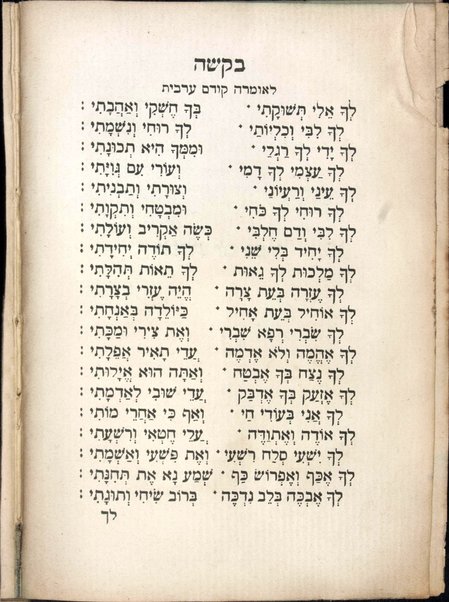 בקשה
לאומרה קודם ערבית
לְךָ אֵלִי תְּשׁוּקָתִי · בְּךָ חֶשְׁקִי וְאַהֲבָתִי :
לְךָ לִבִּי וְכִלְיוֹתַי · לְךָ רוּחִי וְנִשְׁמָתִי :
לְךָ יָדַי לְךָ רַגְלַי · וּמִמְּךָ הִיא תְכוּנָתִי :
לְךָ עַצְמִי לְךָ דָמִי · וְעוֹרִי עִם גְּוִיָּתִי :
לְךָ עֵינַי וְרַעְיוֹנַי · וְצוּרָתִי וְתַבְנִיתִי :
לְךָ רוּחִי לְךָ כֹּחִי · וּמִבְטָחִי וְתִקְוָתִי :
לְךָ לִבִּי וְדַם חֶלְבִּי · כְּשֶׂה אַקְרִיב וְעוֹלָתִי :
לְךָ יָחִיד בְּלִי שֵׁנִי · לְךָ תוֹדֶה יְחִידָתִי :
לְךָ מַלְכוּת לְךָ גֵאוּת · לְךָ תֵאוֹת תְּהִלָּתִי :
לְךָ עֶזְרָה בְּעֵת צָרָה · הֱיֵה עֶזְרִי בְּצָרָתִי :
לְךָ אוֹחִיל בְּעֵת אָחִיל · כַּיּוֹלֵדָה בְּאַנְחָתִי :
לְךָ שִׂבְרִי רְפָא שִׁבְרִי · וְאֶת צִירִי וּמַכָּתִי :
לְךָ אֶהֱמֶה וְלֹא אֶדְמֶה · עֲדֵי תָאִיר אֲפֵלָתִי :
לְךָ נֶצַח בְּךָ אֶבְטַח · וְאַתָּה הוּא אֱיָלוּתִי :
לְךָ אֶזְעַק בְּךָ אֶדְבַּק · עֲדֵי שׁוּבִי לְאַדְמָתִי :
לְךָ אֲנִי בְּעוֹדִי חַי · וְאַף כִּי אַחֲרֵי מוֹתִי :
לְךָ אוֹדֶה וְאֶתְוַדֶּה · עֲלֵי חֶטְאִי וְרִשְׁעָתִי :
לְךָ יִשְׁעִי סְלַח רִשְׁעִי · וְאֶת פִּשְׁעִי וְאַשְׁמָתִי :
לְךָ אִכַּף וְאֶפְרוֹשׂ כַּף · שְׁמַע נָא אֶת תְּחִנָּתִי :
לְךָ אֶבְכֶּה בְּלֵב נִדְכֶּה · בְּרוֹב שִׂיחִי וְתוּגָתִי :
לך